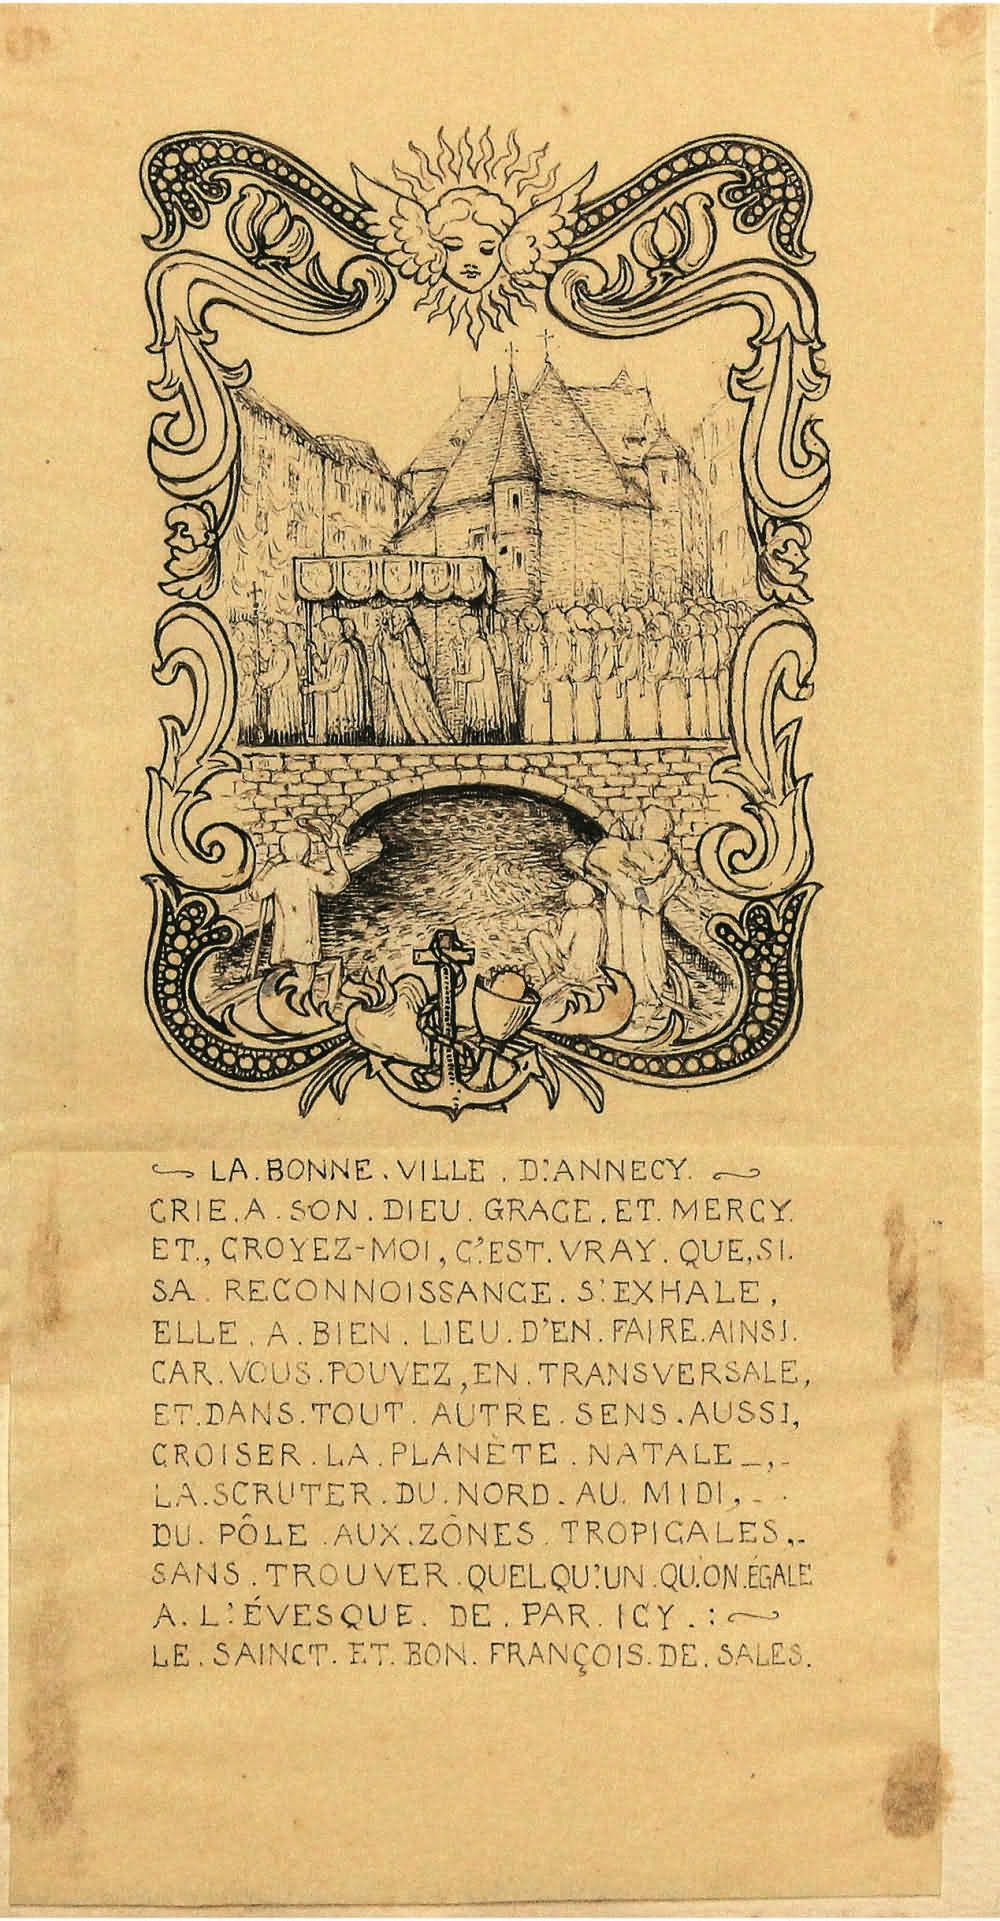 LA.BONNE.VILLE.D'ANNECY.
CRIE.A.SON.DIEU.GRACE.ET.MERCY.
ET., CROYEZ-MOI, C'EST.VRAY.QUE,SI.
SA.RECONNOISSANCE.S'EXHALE,
ELLE.A.BIEN.LIEU.D'EN.FAIRE.AINSI.
CAR.VOUS.POUVEZ,EN.TRANSVERSALE,
ET.DANS.TOUT.AUTRE.SENS.AUSSI,
CROISER.LA.PLANÈTE.NATALE_,-
LA.SCRUTER.DU.NORD.AU.MIDI,-.
DU.PÔLE.AUX.ZÔNES.TROPICALES,-
SANS.TROUVER.QUELQU'UN.QU'ON.ÉGALE
A.L'ÉVESQUE.DE.PAR.ICY.:~
LE.SAINCT.ET.BON.FRANÇOIS.DE.SALES.